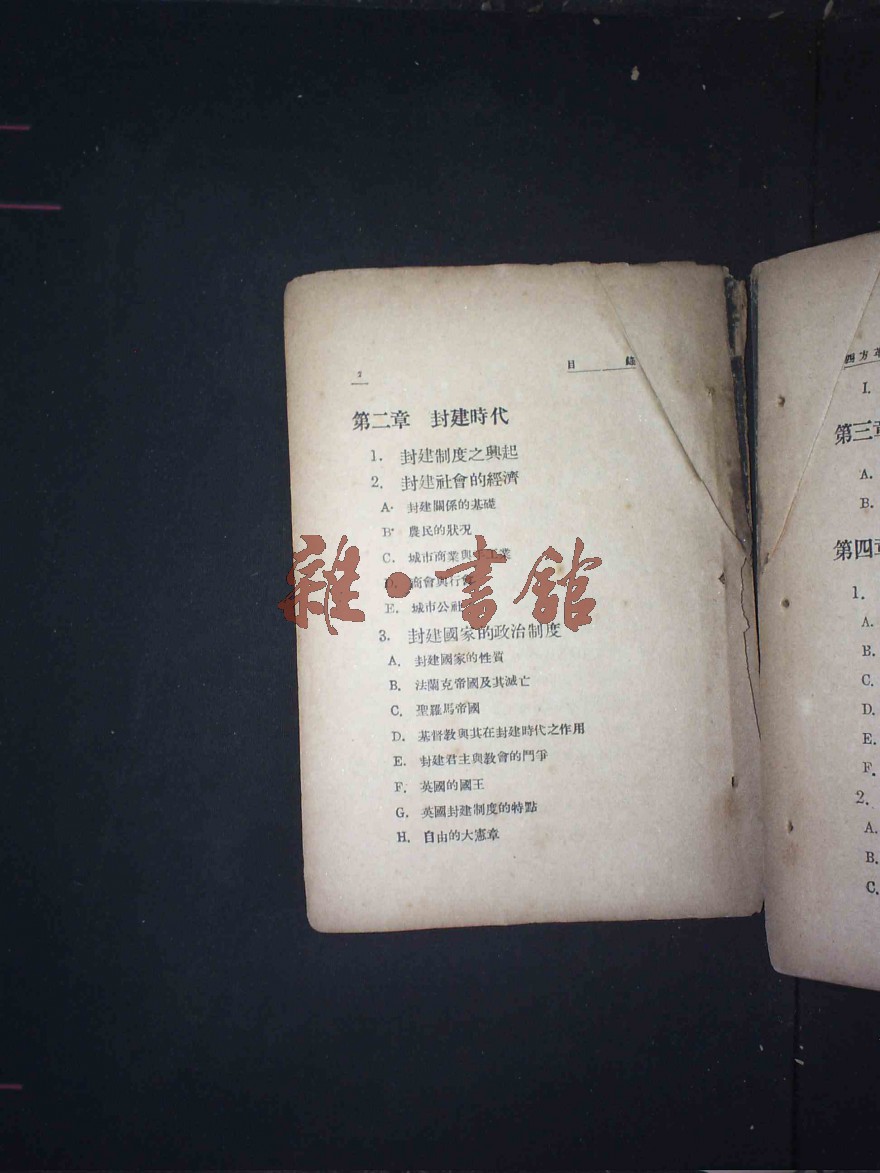 2 目錄
第二章 封建時代
1. 封建制度之興起
2. 封建社會的經濟
A. 封建關係的基礎
B. 農民的狀況
C. 城市商業與手工業
D. 商會與行會
E. 城市公社
3. 封建國家的政治制度
A. 封建國家的性質
B. 法蘭克帝國及其滅亡
C. 聖羅馬帝國
D. 基督教與其在封建時代之作用
E. 封建君主與教會的鬥爭
F. 英國的國王
G. 英國封建制度的特點
H. 自由的大憲章
雜·書館
四方
I.
第三章
A.
B.
第四章
1.
A.
B.
C.
D.
E.
F.
2.
A.
B.
C.